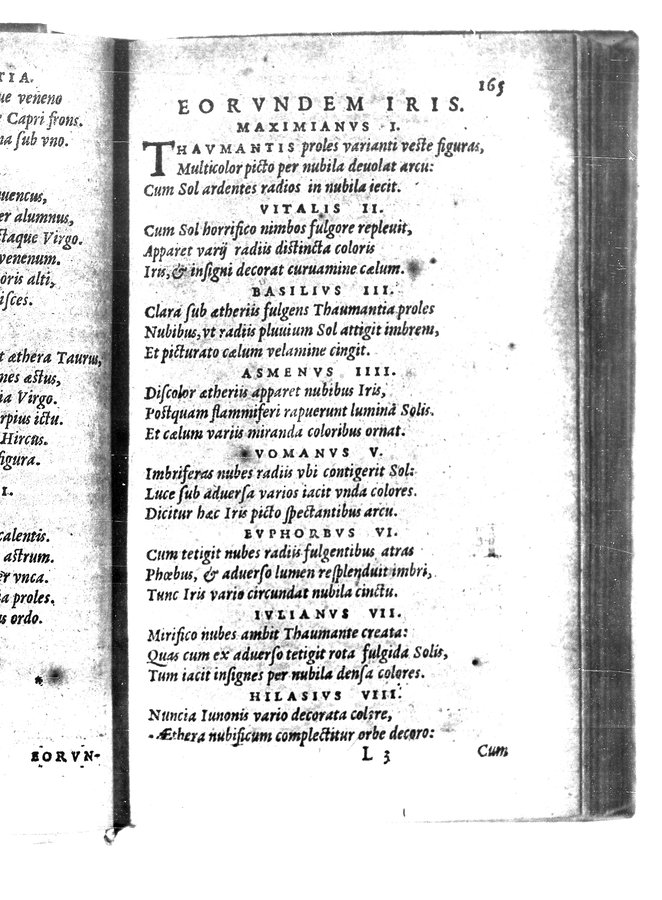 TIA.
ue veneno
e Capri frons.
na sub vno.
uencus,
er alumnus,
ctaque Virgo.
venenum.
oris alti,
isces.
t æthera Taurus,
nes æstus,
ia Virgo.
rpius ictu.
Hircus.
figura.
I.
calentis.
astrum.
er vnca.
ia proles.
us ordo.
EORVN-
165
EORVNDEM IRIS.
MAXIMIANVS I.
THAVMANTIS proles varianti veste figuras,
Multicolor picto per nubila deuolat arcu:
Cum Sol ardentes radios in nubila iecit.
VITALIS II.
Cum Sol horrifico nimbos fulgore repleuit,
Apparet varij radiis distincta coloris
Iris, & insigni decorat curuamine cælum.
BASILIVS III.
Clara sub ætheriis fulgens Thaumantia proles
Nubibus, vt radiis pluuium Sol attigit imbrem,
Et picturato cælum velamine cingit.
ASMENVS IIII.
Discolor ætheriis apparet nubibus Iris,
Postquam flammiferi rapuerunt lumina Solis.
Et cælum variis miranda coloribus ornat.
VOMANVS V.
Imbriferas nubes radiis vbi contigerit Sol:
Luce sub aduersa varios iacit vnda colores.
Dicitur hæc Iris picto spectantibus arcu.
EVPHORBVS VI.
Cum tetigit nubes radiis fulgentibus atras
Phœbus, & aduerso lumen resplenduit imbri,
Tunc Iris vario circundat nubila cinctu.
IVLIANVS VII.
Mirifico nubes ambit Thaumante creata:
Quas cum ex aduerso tetigit rota fulgida Solis,
Tum iacit insignes per nubila densa colores.
HILASIVS VIII.
Nuncia Iunonis vario decorata colore,
Æthera nubificum complectitur orbe decoro:
L 3
Cum